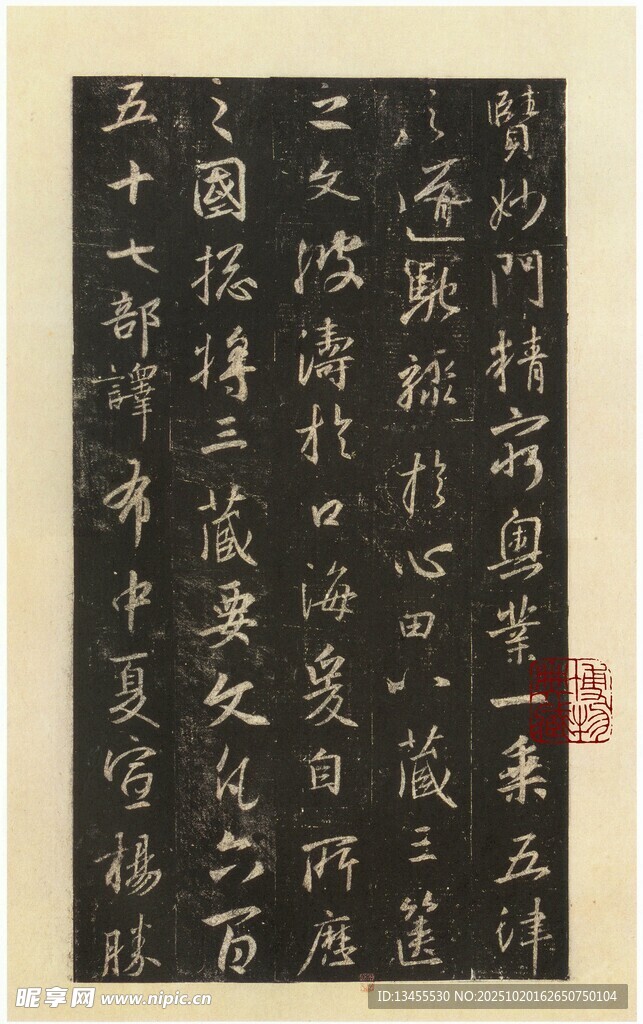 賢妙門精窮奧業一乘五律
之道馳驟於心田八藏三篋
之文波濤於口海爰自所歷
之國揔將三藏要文凡六百
五十七部譯布中夏宣揚勝
博物
昵享网 www.nipic.cn
ID:13455530 NO:20251020162650750104